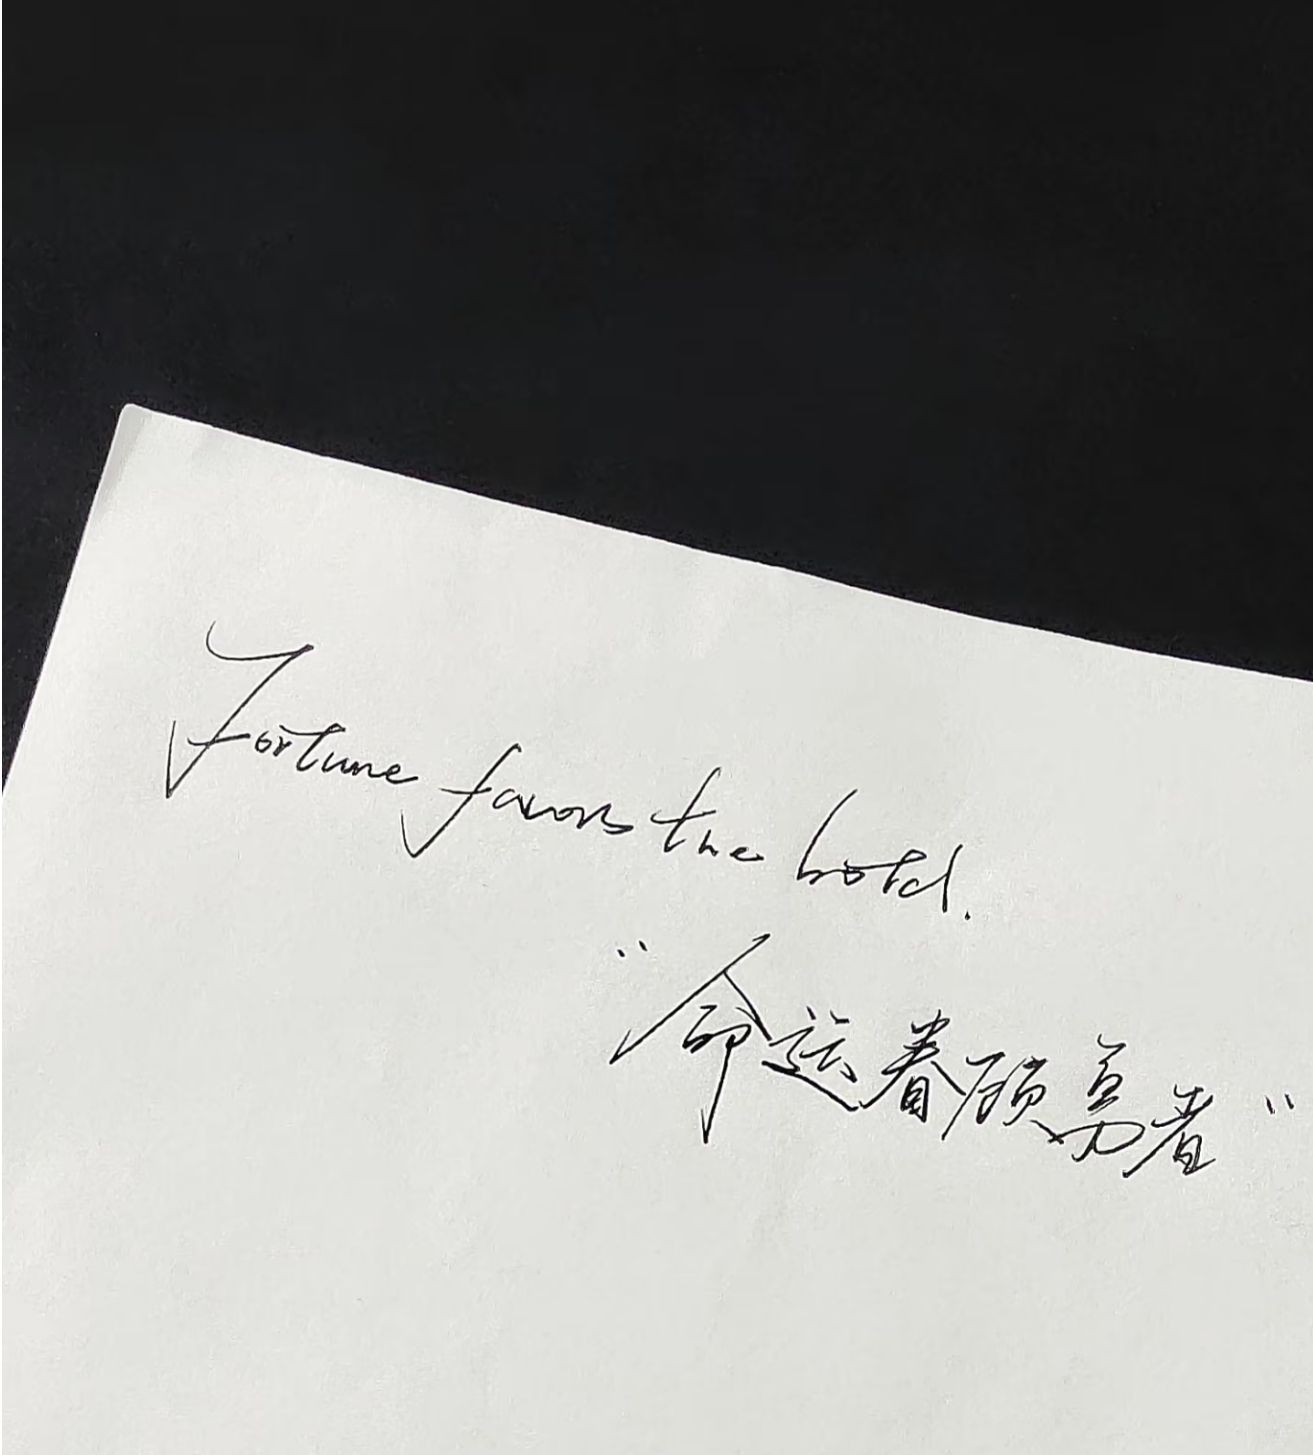 Fortune favors the bold.
“命运眷顾勇者”